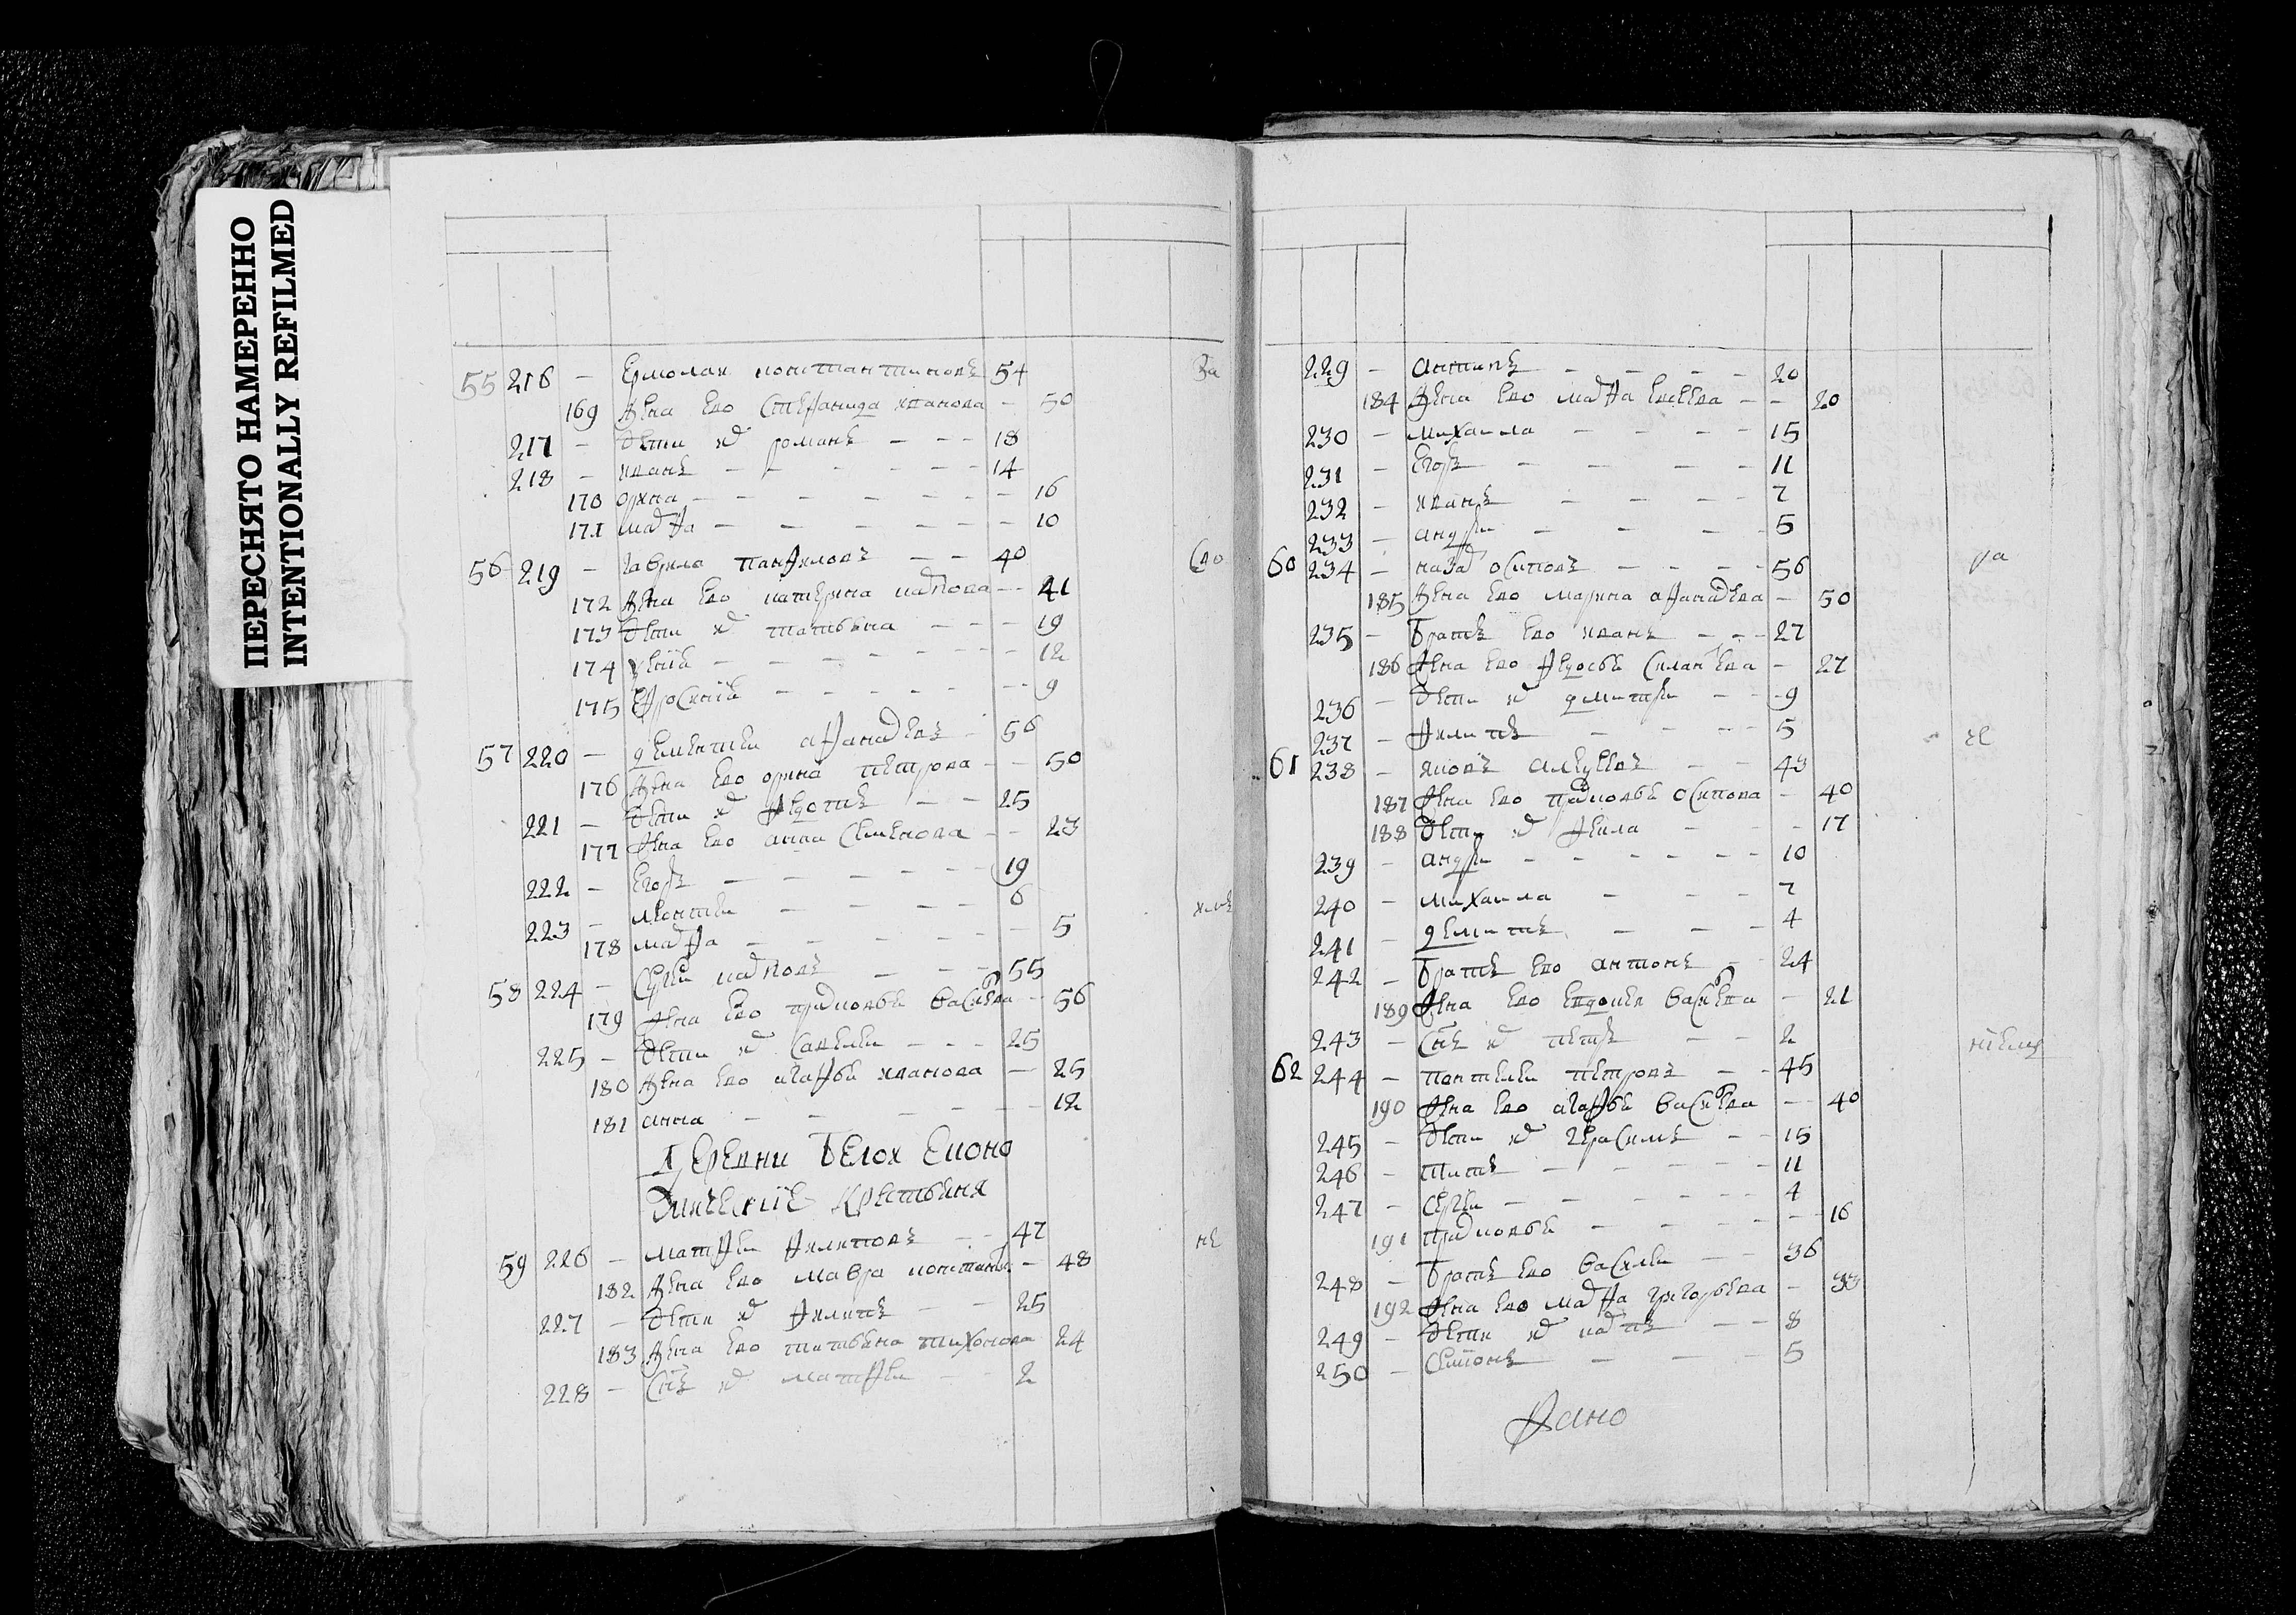 ПЕРЕСНЯТО НАМЕРЕННО
INTENTIONALLY REFILMED
55 216 - Ермолаи константиновъ 54
169 Жена ево Стефанида иванова - 50
217 - Дети их романъ - - - 18
218 - иванъ - - - - - - 14
170 орина - - - - - - 16
171 марфа - - - - - - 10
56 219 - гаврила панфиловъ - - 40
172 Жена ево катерина карпова - - 41
173 Дети их татьяна - - - 19
174 - - - - - - 12
175 Ефросиниа - - - - - - 9
57 220 - дементеи афанасьевъ - 56
176 Жена ево орина петрова - - 50
221 - Дети их федотъ - - 25
177 Жена ево анна Семенова - - 23
222 - Егоръ - - - - - - 19
223 - леонтеи - - - - 6
178 марфа - - - - - - 5
58 224 - Сергеи карповъ - - - 55
179 Жена ево прасковья васильева - 56
225 - Дети их Савелеи - - - 25
180 Жена ево агафья иванова - 25
181 анна - - - - - - 12
Деревни Белои
Крестьяня
59 226 - матфеи филиповъ - - 47
182 Жена ево мавра констант - 48
227 - Дети их филипъ - - 25
183 Жена ево татьяна тихонова 24
228 - Снъ их матфеи - - 2
За
Сво
не
229 - антипъ - - - - - 20
184 Жена ево марфа евсеева - - 20
230 - михаила - - - - 15
231 - Егоръ - - - - 11
232 - иванъ - - - - 7
233 - андреи - - - 5
60 234 - назар осиповъ - - - - 56
185 Жена ево марина афанасьева - 50
235 - Братъ ево иванъ - - - 27
186 Жена ево федосья Силантьева - 27
236 - Дети их дмитреи - - - 9
237 - филипъ - - - - 5
61 238 - яковъ алексеевъ - - 43
187 Жена ево прасковья осипова - 40
188 Дети их фекла - - - 17
239 - андреи - - - - - - 10
240 - михаила - - - 7
241 - дементеи - - - 4
242 - Братъ ево антонъ - - 24
189 Жена ево Евдокея васильева - 21
243 - Снъ их петръ - - 2
62 244 - пантелеи петровъ - - 45
190 Жена ево агафья васильева - - 40
245 - Дети их герасимъ - - 15
246 - титъ - - - - - - 11
247 - Сергеи - - - - - - 4
191 прасковья - - - - - - 16
248 - Братъ ево василеи - - 36
192 Жена ево марфа григорьева - 33
249 - Дети их карпъ - - 8
250 - Семионъ - - - 5
ра